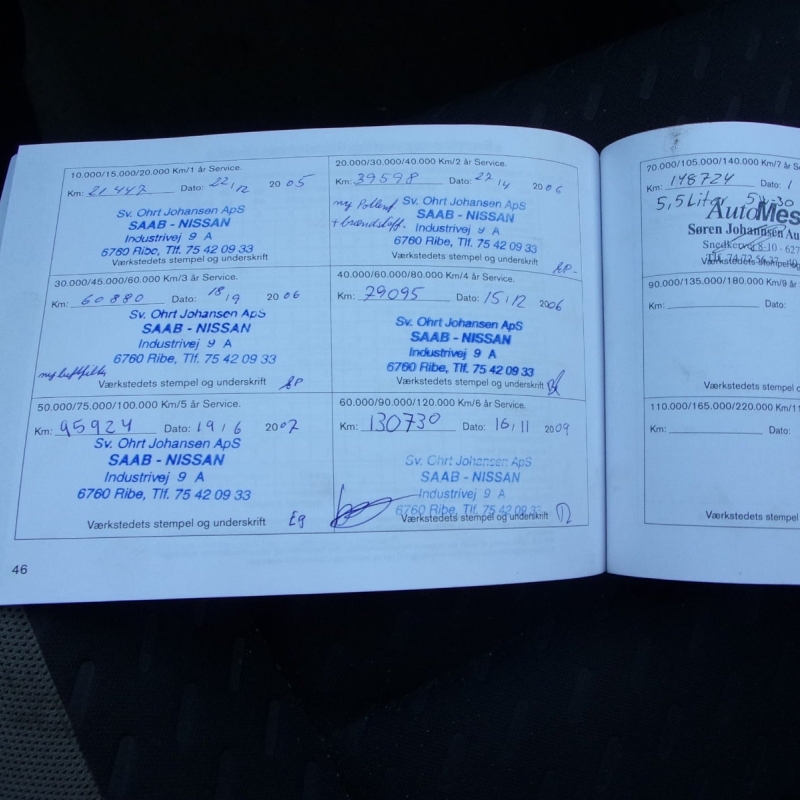 10.000/15.000/20.000 Km/1 år Service.
Km: 21447 Dato: 22/12 2005
Sv. Ohrt Johansen ApS
SAAB - NISSAN
Industrivej 9 A
6760 Ribe, Tlf. 75 42 09 33
Værkstedets stempel og underskrift
20.000/30.000/40.000 Km/2 år Service.
Km: 39598 Dato: 27/4 2006
ny Pollenf
+ brændstoff.
Sv. Ohrt Johansen ApS
SAAB - NISSAN
Industrivej 9 A
6760 Ribe, Tlf. 75 42 09 33
Værkstedets stempel og underskrift
30.000/45.000/60.000 Km/3 år Service.
Km: 60880 Dato: 18/9 2006
Sv. Ohrt Johansen ApS
SAAB - NISSAN
Industrivej 9 A
6760 Ribe, Tlf. 75 42 09 33
ny luftfilter
Værkstedets stempel og underskrift
40.000/60.000/80.000 Km/4 år Service.
Km: 79095 Dato: 15/12 2006
Sv. Ohrt Johansen ApS
SAAB - NISSAN
Industrivej 9 A
6760 Ribe, Tlf. 75 42 09 33
Værkstedets stempel og underskrift
50.000/75.000/100.000 Km/5 år Service.
Km: 95924 Dato: 19/6 2007
Sv. Ohrt Johansen ApS
SAAB - NISSAN
Industrivej 9 A
6760 Ribe, Tlf. 75 42 09 33
Værkstedets stempel og underskrift
60.000/90.000/120.000 Km/6 år Service.
Km: 130730 Dato: 16/11 2009
Sv. Ohrt Johansen ApS
SAAB - NISSAN
Industrivej 9 A
6760 Ribe, Tlf. 75 42 09 33
Værkstedets stempel og underskrift
46
70.000/105.000/140.000 Km/7 år
Km: 148724 Dato:
5,5 Liter 5W30
AutoMes
Søren Johannsen Au
Snedkervej 8-10 - 627
Værkstedets stempel og
90.000/135.000/180.000 Km/9 år
Km: Dato:
Værkstedets stempel o
110.000/165.000/220.000 Km/11
Km: Dato:
Værkstedets stempel